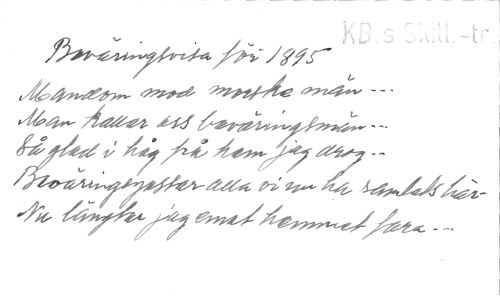 KB:s Skill.-tr.
Beväringsvisa för 1895
Mandom mod morske män ---
Man kallar oss beväringsmän ---
Så glad i håg på hem jag drog ---
Beväringsgossar alla vi nu ha samlats här-
Nu längtar jag emot hemmet fara ---